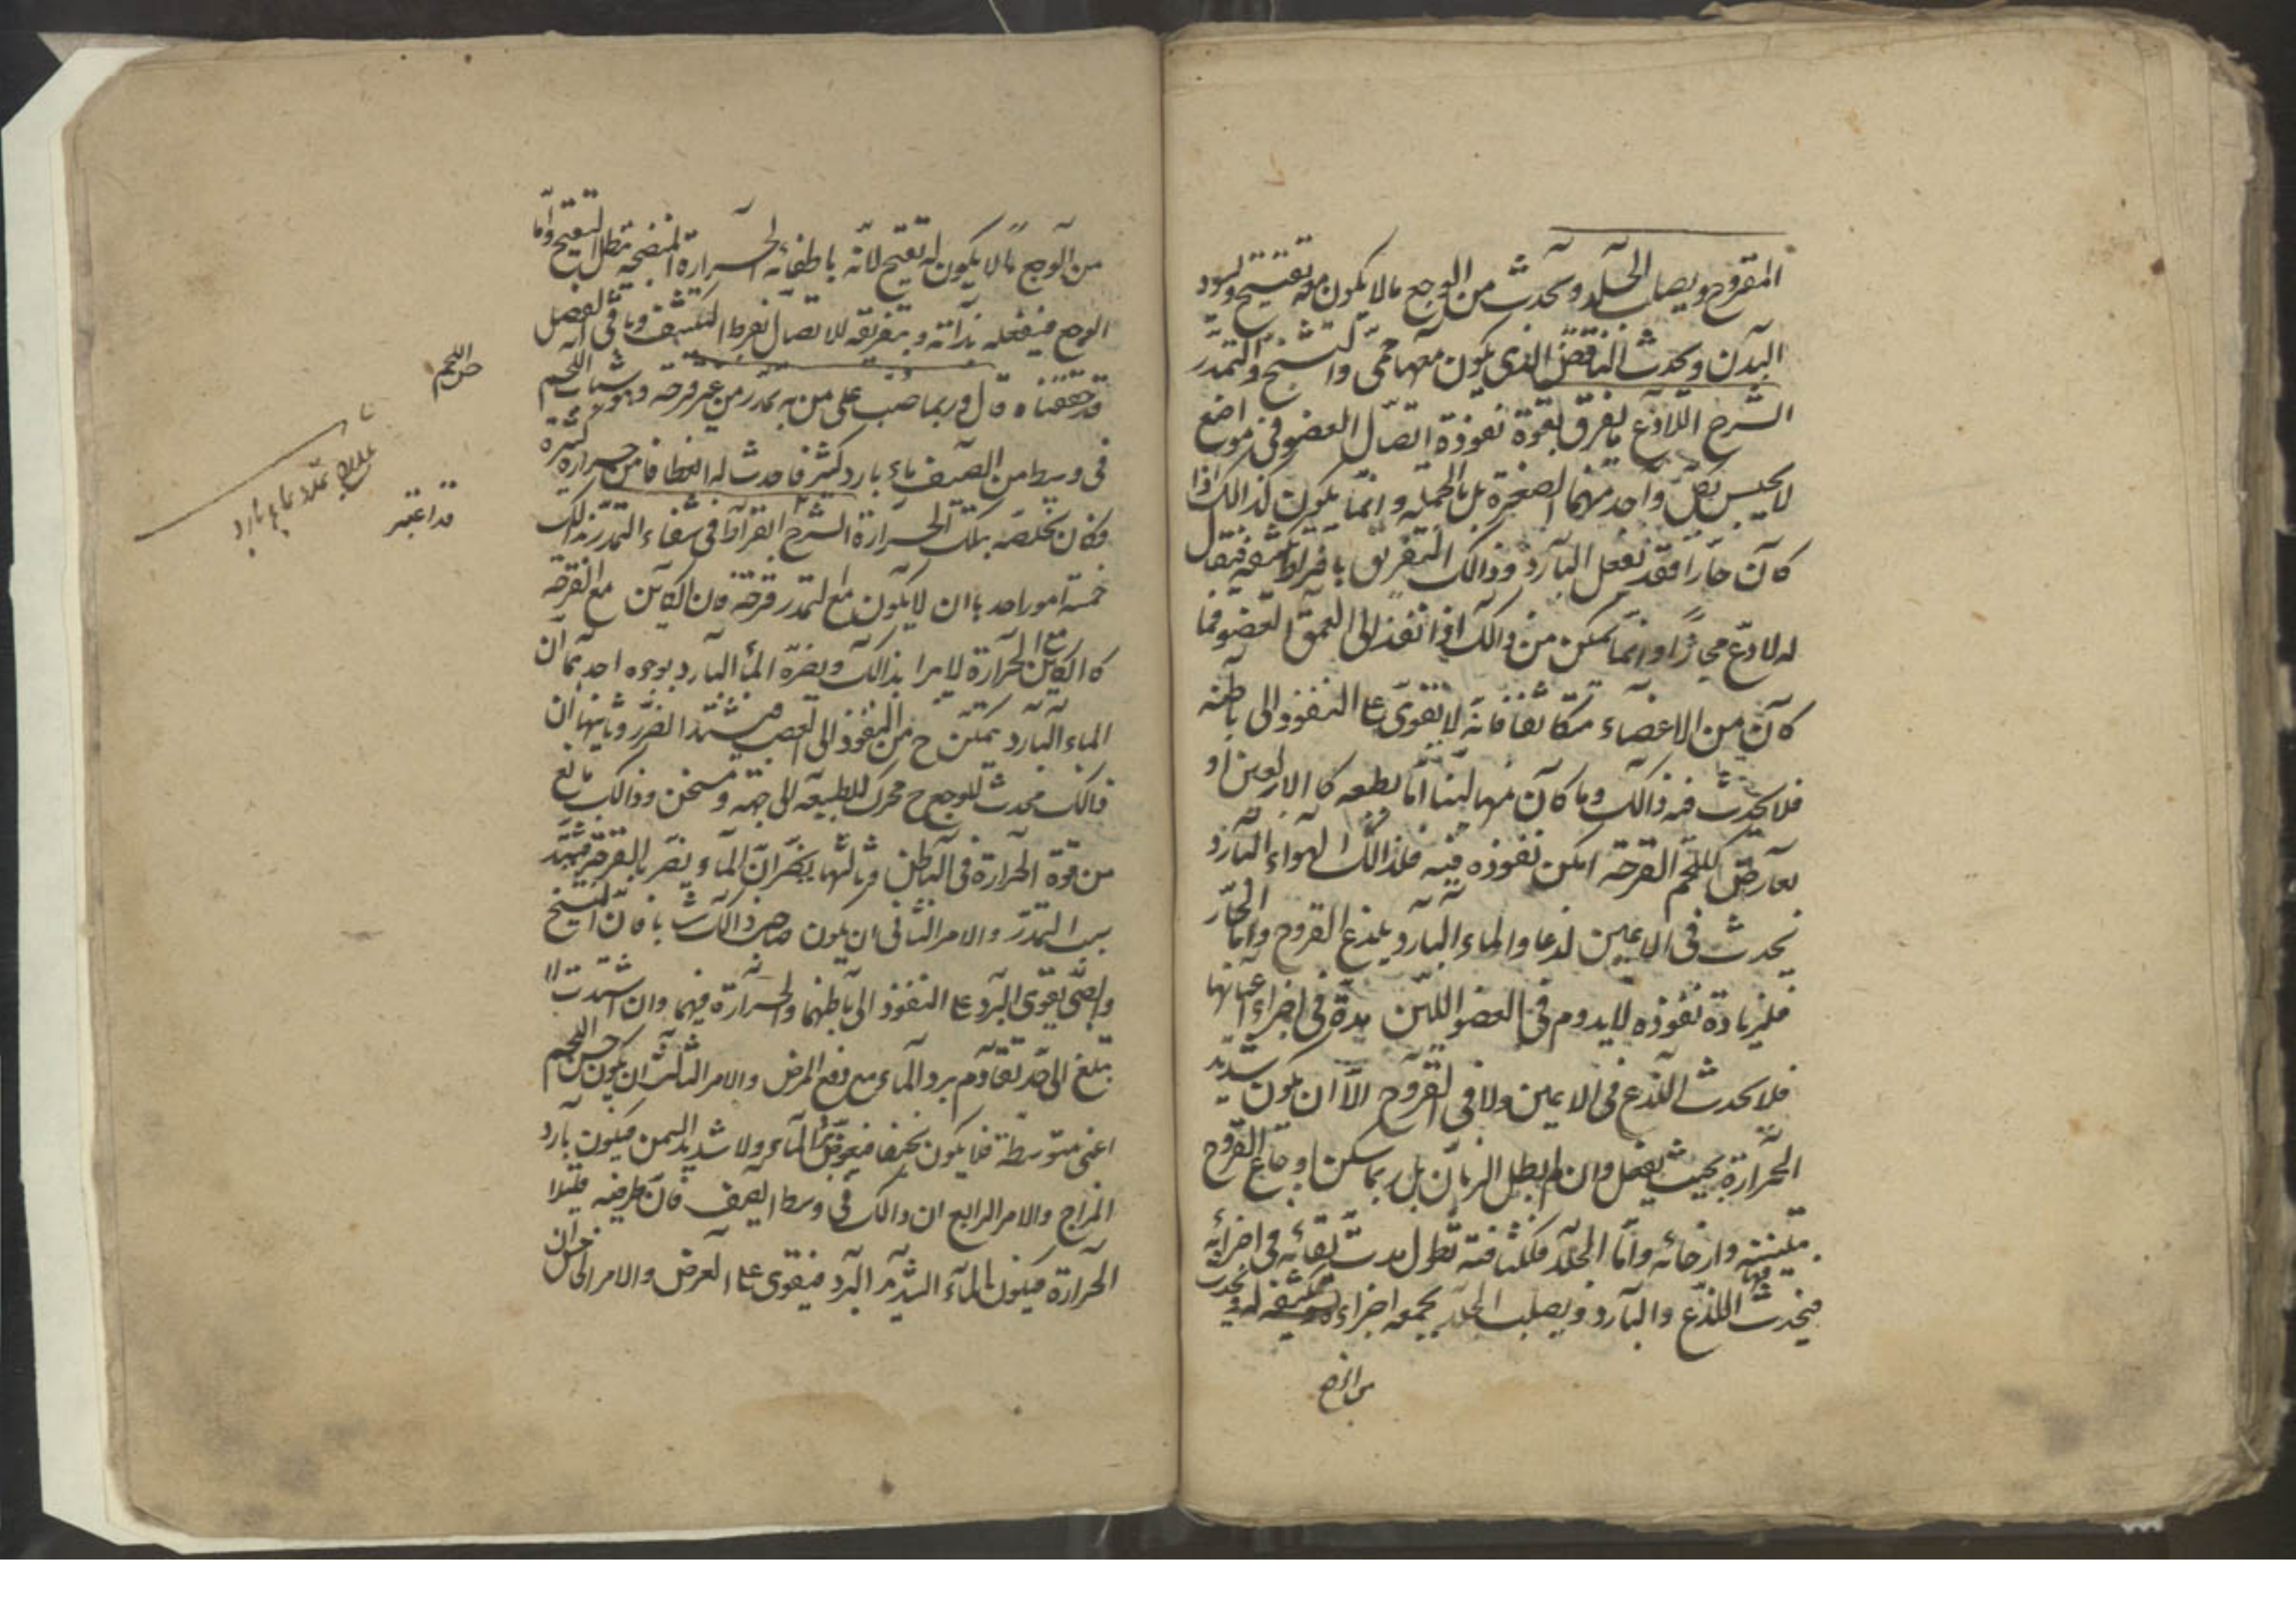 المقروح ويصلب الجلد ويحدث من الوجع ما لا يكون معه تقيح ويسود
البدن ويحدث النافض الذي يكون معها حمى والتشنج والتمدد
الشرح اللاذع ما يفرق بقوة نفوذه اتصال العضو في مواضع
لا يحس بكل واحد منهما لصغره بل بالجملة وانما يكون كذالك اذا
كان حارا فقد يفعل البارد وذالك التفريق بافراط تكثيفه فيقال
له لاذع مجازا وانما يمكن من ذالك اذا نفذ الى العمق العضو فما
كان من الاعضاء متكاثفا فانه لا يقوى على النفوذ الى باطنه
فلا يحدث فيه ذالك وما كان منها لينا اما بطبعه كا الاربعين او
بعارض كلحم القرحة امكن نفوذه فيه فلذالك الهواء البارد
يحدث في الاعين لذعا والماء البارد يلذع القروح واما الحار
فلزيادة نفوذه لا يدوم في العضو اللين مدة في اجزاء اعيانها
فلا يحدث اللذع في الاعين ولا في القروح الا ان يكون شديد
الحرارة بحيث يفعل وان لم يطل الزمان بل ربما سكن اوجاع القروح
بتليينه وارخائه واما الجلد فلكثافته تطول مدت بقائه في اجزائه
فيحدث فيها اللذع والبارد ويصلب الجلد بجمعه اجزاءه وتكثيفه له ويحدث
من الوجع
من الوجع ما لا يكون له تقيح لانه باطفائه الحرارة المنضجة يبطل التقيح واما
الوجع فيفعله بذاته وبتفريقه للاتصال لفرط التكثيف وباقي الفصل
قد حققناه قال وربما صب على من به تمدد من غير قرحة وهو شاب اللحم
في وسط من الصيف ماء بارد كثير فاحدث له انعطافا من حرارة كثيرة
فكان تخلصه بتلك الحرارة الشرح ابقراط في شفاء التمدد بذالك
خمسة امور احدها ان لا يكون مع التمدد قرحة فان الكاين مع القرحة
كا الكاين مع الحرارة لا يبرا بذالك ويضره الماء البارد بوجوه احدها ان
الماء البارد يتمكن ح من النفوذ الى العصب فيشتد الضرر وثانيها ان
ذالك محدث للوجع ح محرك للطبيعة الى جهة وتسخن وذالك مانع
من قوة الحرارة في الباطن وثالثها يضر ان الماء يضر بالقرحة فيشتد
سبب التمدد والامر الثاني ان يكون صاحب ذالك شابا فان الشيخ
والصبي يقوى البرد على النفوذ الى باطنهما والحرارة فيهما وان اشتدت لا
تبلغ الى حد تقاوم برد الماء مع دفع المرض والامر الثالث ان يكون حسن اللحم
اعني متوسطة فلا يكون نحيفا فيغوص الماء ولا شديد السمن فيكون بارد
المزاج والامر الرابع ان ذالك في وسط الصيف فان طرفيه قليلا
الحرارة فيكون الماء الشديد البرد فيقوى على العرض والامر الخامس ان
حسن اللحم
قد اعتبر
علاج تمدد بماء بارد